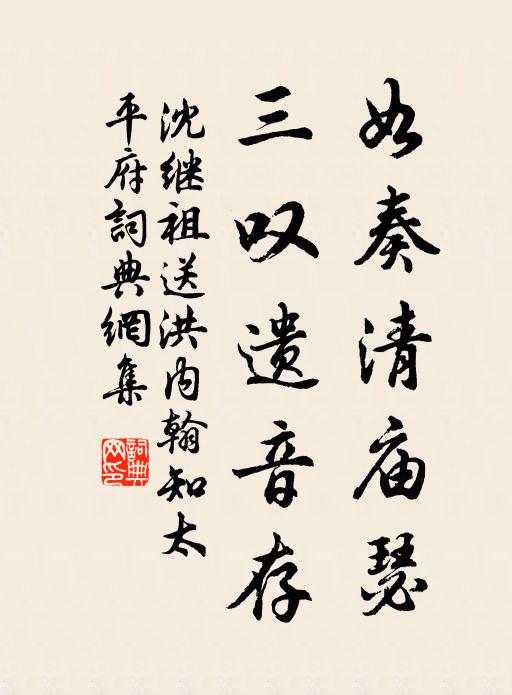 如奏清庙瑟
三叹遗音存
沈继祖送洪内翰知太
平府詞典網集
詞典
网印